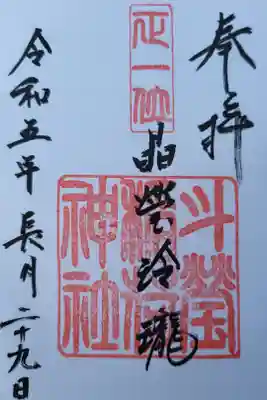 奉拝
正一位
晶瑩玲瓏
斗瑩
稲荷
神社
令和五年長月二十九日